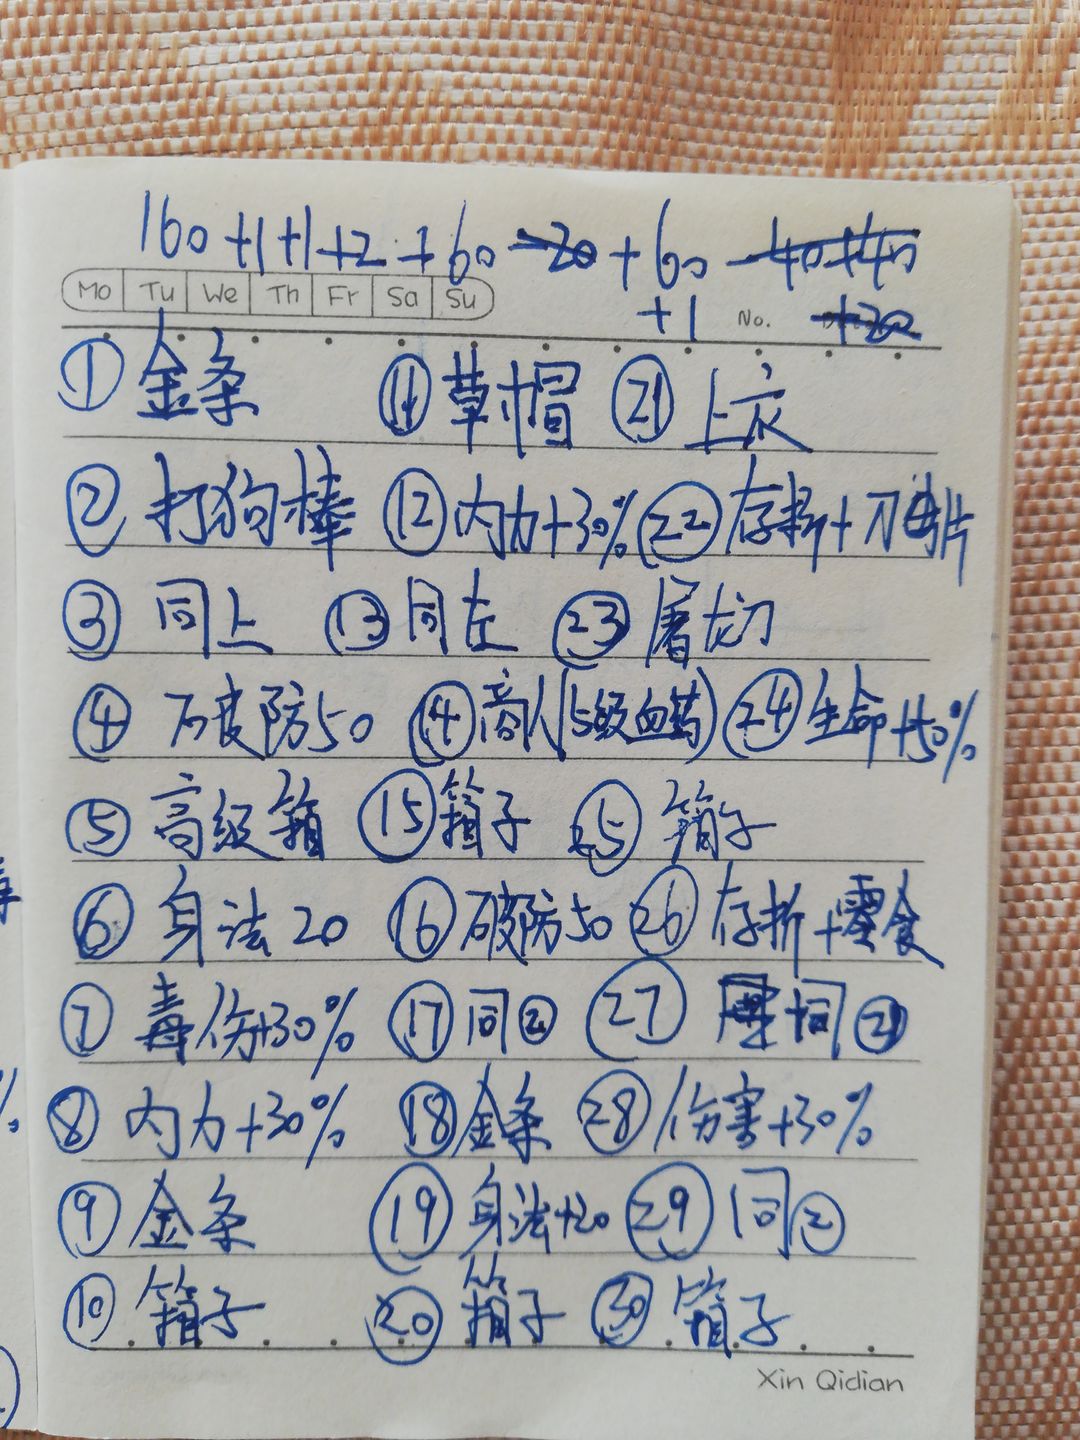 160+1+1+2+60-20+60-40+40
Mo Tu We Th Fr Sa Su +1 No. +20
① 金条 ⑪ 草帽 ㉑ 上衣
② 打狗棒 ⑫ 内力+30% ㉒ 存折+刀碎片
③ 同上 ⑬ 同左 ㉓ 屠龙刀
④ 破防50 ⑭ 商人(5级血药) ㉔ 生命+50%
⑤ 高级箱 ⑮ 箱子 ㉕ 箱子
⑥ 身法20 ⑯ 破防50 ㉖ 存折+零食
⑦ 毒伤+30% ⑰ 同② ㉗ 同㉑
⑧ 内力+30% ⑱ 金条 ㉘ 伤害+30%
⑨ 金条 ⑲ 身法+20 ㉙ 同②
⑩ 箱子 ⑳ 箱子 ㉚ 箱子
Xin Qidian